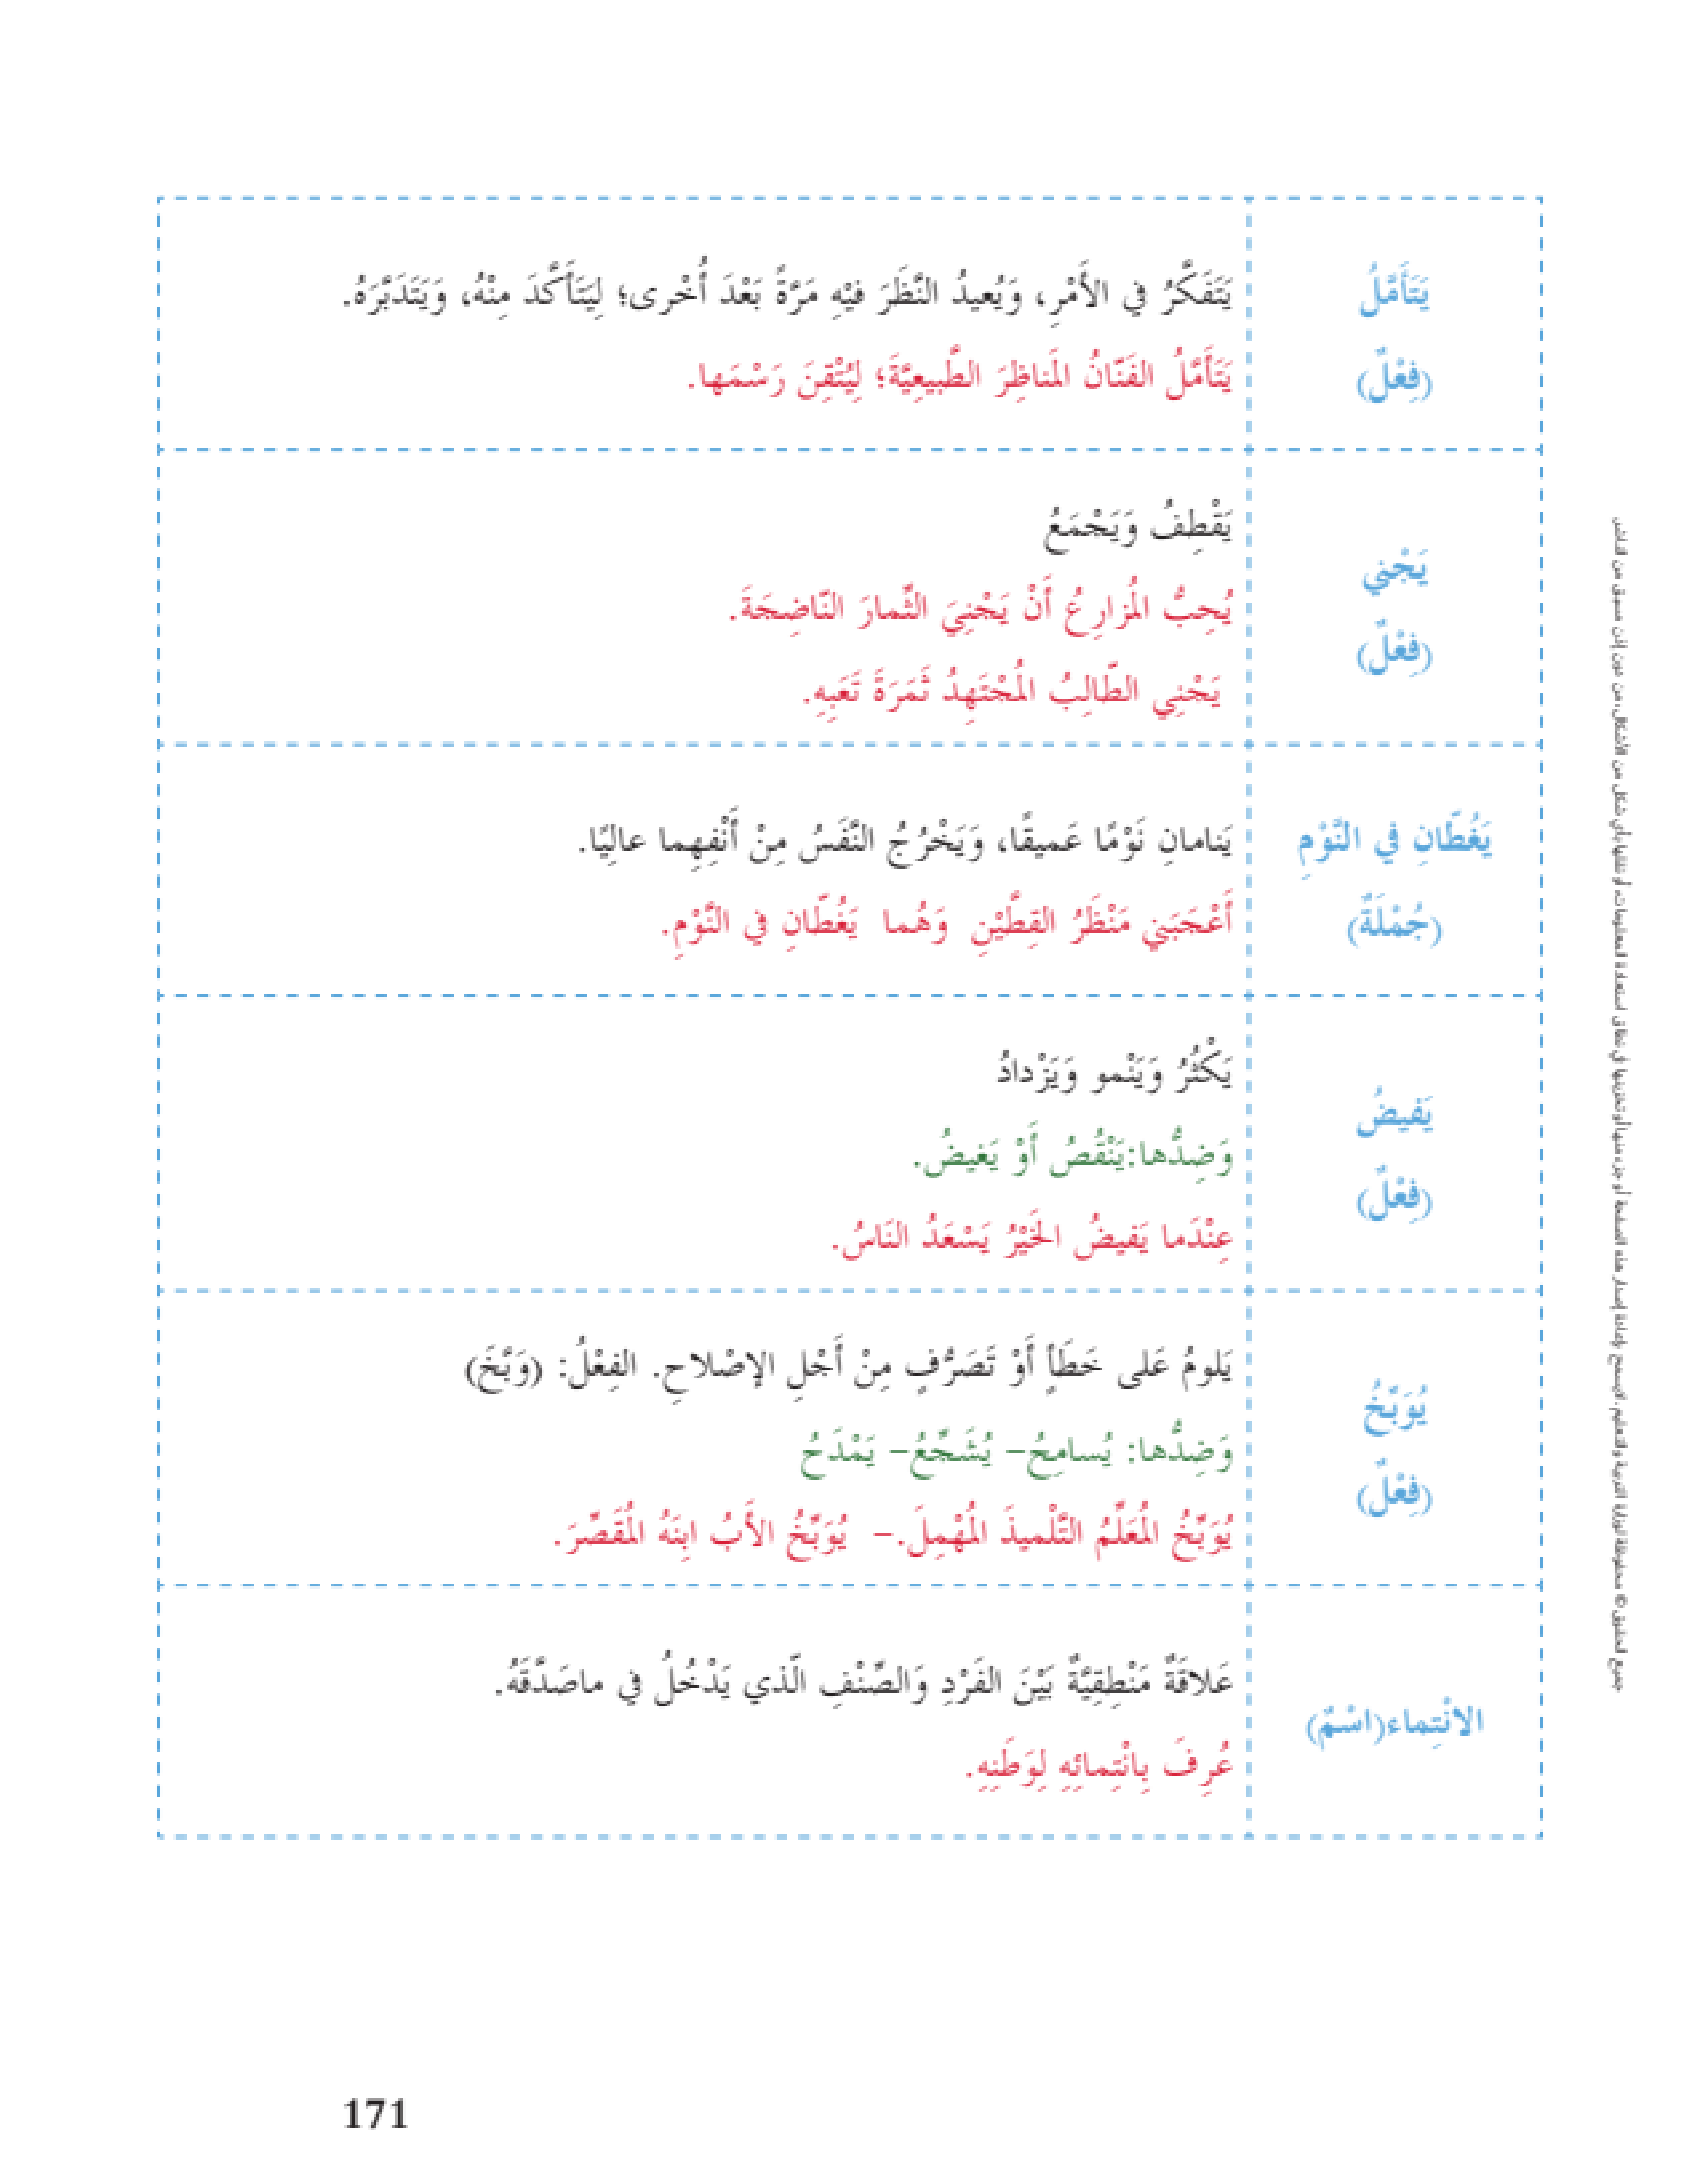 يَتَأَمَّلُ
(فِعْلٌ)
يَتَفَكَّرُ في الأَمْرِ، وَيُعيدُ النَّظَرَ فيْهِ مَرَّةً بَعْدَ أُخْرى؛ لِيَتَأَكَّدَ مِنْهُ، وَيَتَدَبَّرَهُ.
يَتَأَمَّلُ الفَنّانُ المَناظِرَ الطَّبيعِيَّةَ؛ لِيُتْقِنَ رَسْمَها.
يَجْني
(فِعْلٌ)
يَقْطِفُ وَيَجْمَعُ
يُحِبُّ المُزارِعُ أَنْ يَجْنِيَ الثِّمارَ النّاضِجَةَ.
يَجْنِي الطّالِبُ المُجْتَهِدُ ثَمَرَةَ تَعَبِهِ.
يَغُطّانِ في النَّوْمِ
(جُمْلَةٌ)
يَنامانِ نَوْمًا عَميقًا، وَيَخْرُجُ النَّفَسُ مِنْ أَنْفِهِما عالِيًا.
أَعْجَبَني مَنْظَرُ القِطَّيْنِ وَهُما يَغُطّانِ في النَّوْمِ.
يَفيضُ
(فِعْلٌ)
يَكْثُرُ وَيَنْمو وَيَزْدادُ
وَضِدُّها:يَنْقُصُ أَوْ يَغيضُ.
عِنْدَما يَفيضُ الخَيْرُ يَسْعَدُ النَاسُ.
يُوَبِّخُ
(فِعْلٌ)
يَلومُ عَلى خَطَأٍ أَوْ تَصَرُّفٍ مِنْ أَجْلِ الإصْلاحِ. الفِعْلُ: (وَبَّخَ)
وَضِدُّها: يُسامِحُ– يُشَجِّعُ– يَمْدَحُ
يُوَبِّخُ المُعَلِّمُ التَّلْميذَ المُهْمِلَ.– يُوَبِّخُ الأَبُ ابنَهُ المُقَصِّرَ.
الانْتِماء(اسْمٌ)
عَلاقَةٌ مَنْطِقِيَّةٌ بَيْنَ الفَرْدِ وَالصِّنْفِ الَّذي يَدْخُلُ في ماصَدَّقَهُ.
عُرِفَ بِانْتِمائِهِ لِوَطَنِهِ.
171